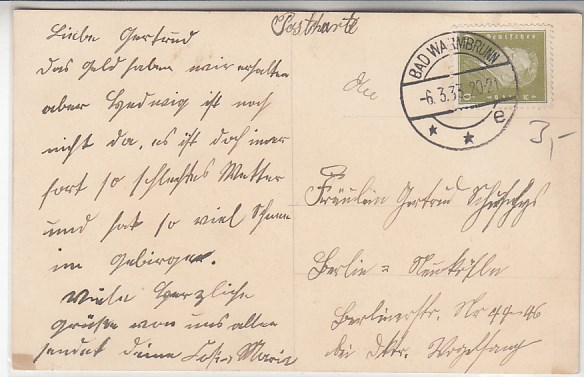 Postkarte
Liebe Gertrud
das Geld haben wir erhalten
aber Hedwig ist noch
nicht da, es ist doch immer
fort so schlechtes Wetter
und hat so viel Schnee
im Gebirge.
Viele herzliche
Grüße von uns allen
sendet deine Marie
Deutsches
BAD WARMBRUNN
-6.3.33. 20-21
e
3,-
Fräulein Gertrud
Berlin = Neukölln
Berlinerstr. Nr 44-46
bei Dktr. Vogelsang